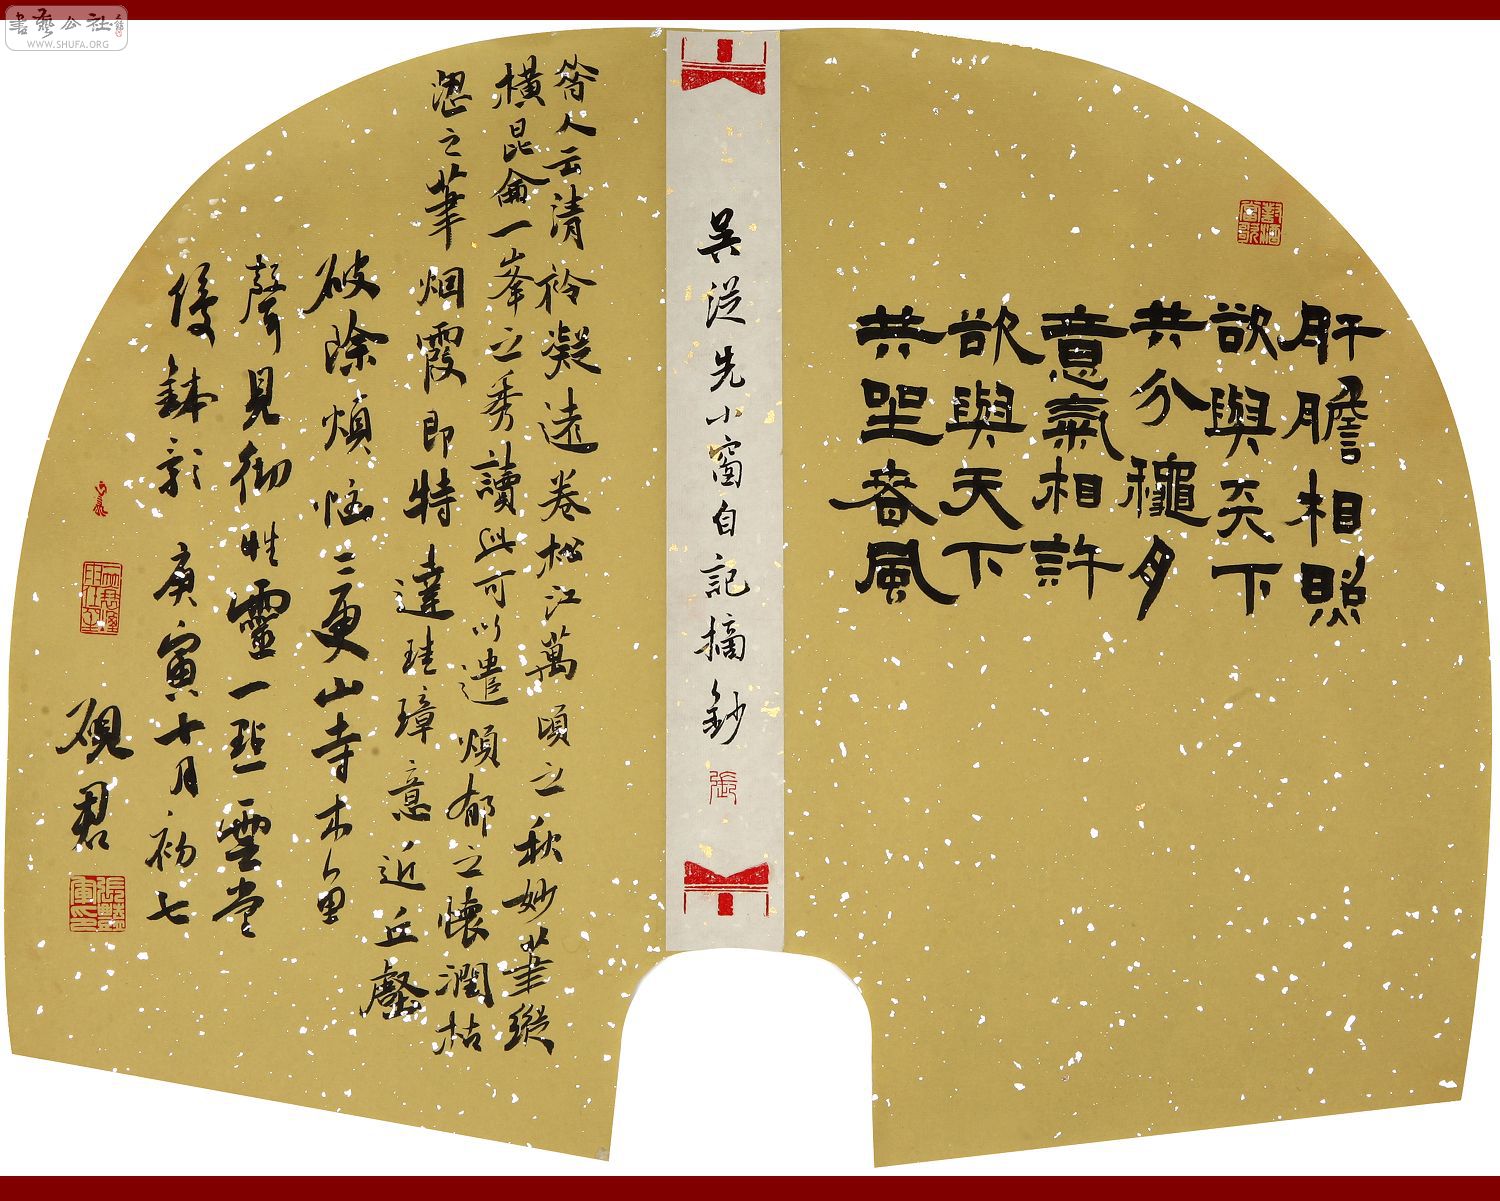 肝膽相照
欲與天下
共分穐月
意氣相許
欲與天下
共坐春風
吳從先小窗自記摘鈔
張
昔人云清衿凝遠卷松江萬頃之秋妙筆縱
橫昆侖一峯之秀讀此可以遣煩郁之懷潤枯
澀之筆烟霞即特達珪璋意近丘壑
破除煩惱二更山寺木魚
聲見徹性靈一點雲堂
優鉢影 庚寅十月初七
硯君
書藝公社
WWW.SHUFA.ORG